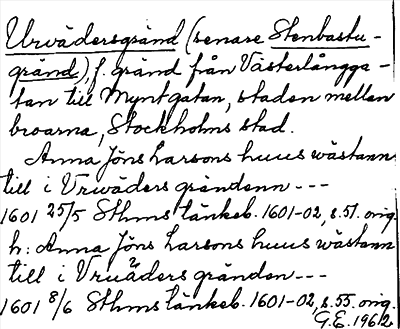 Urvädersgränd (senare Stenbastu-
gränd), f. gränd från Västerlångga-
tan till Myntgatan, staden mellan
broarna, Stockholms stad.
Anna Jöns Larsons huus wästann
till i Vrwäders grändenn ---
1601 25/5 Sthms tänkeb. 1601-02, s. 51. orig.
h: Anna Jöns Larsons huus wästann
till i Vruäders gränden ---
1601 8/6 Sthms tänkeb. 1601-02, s. 55. orig.
G.E. 1962